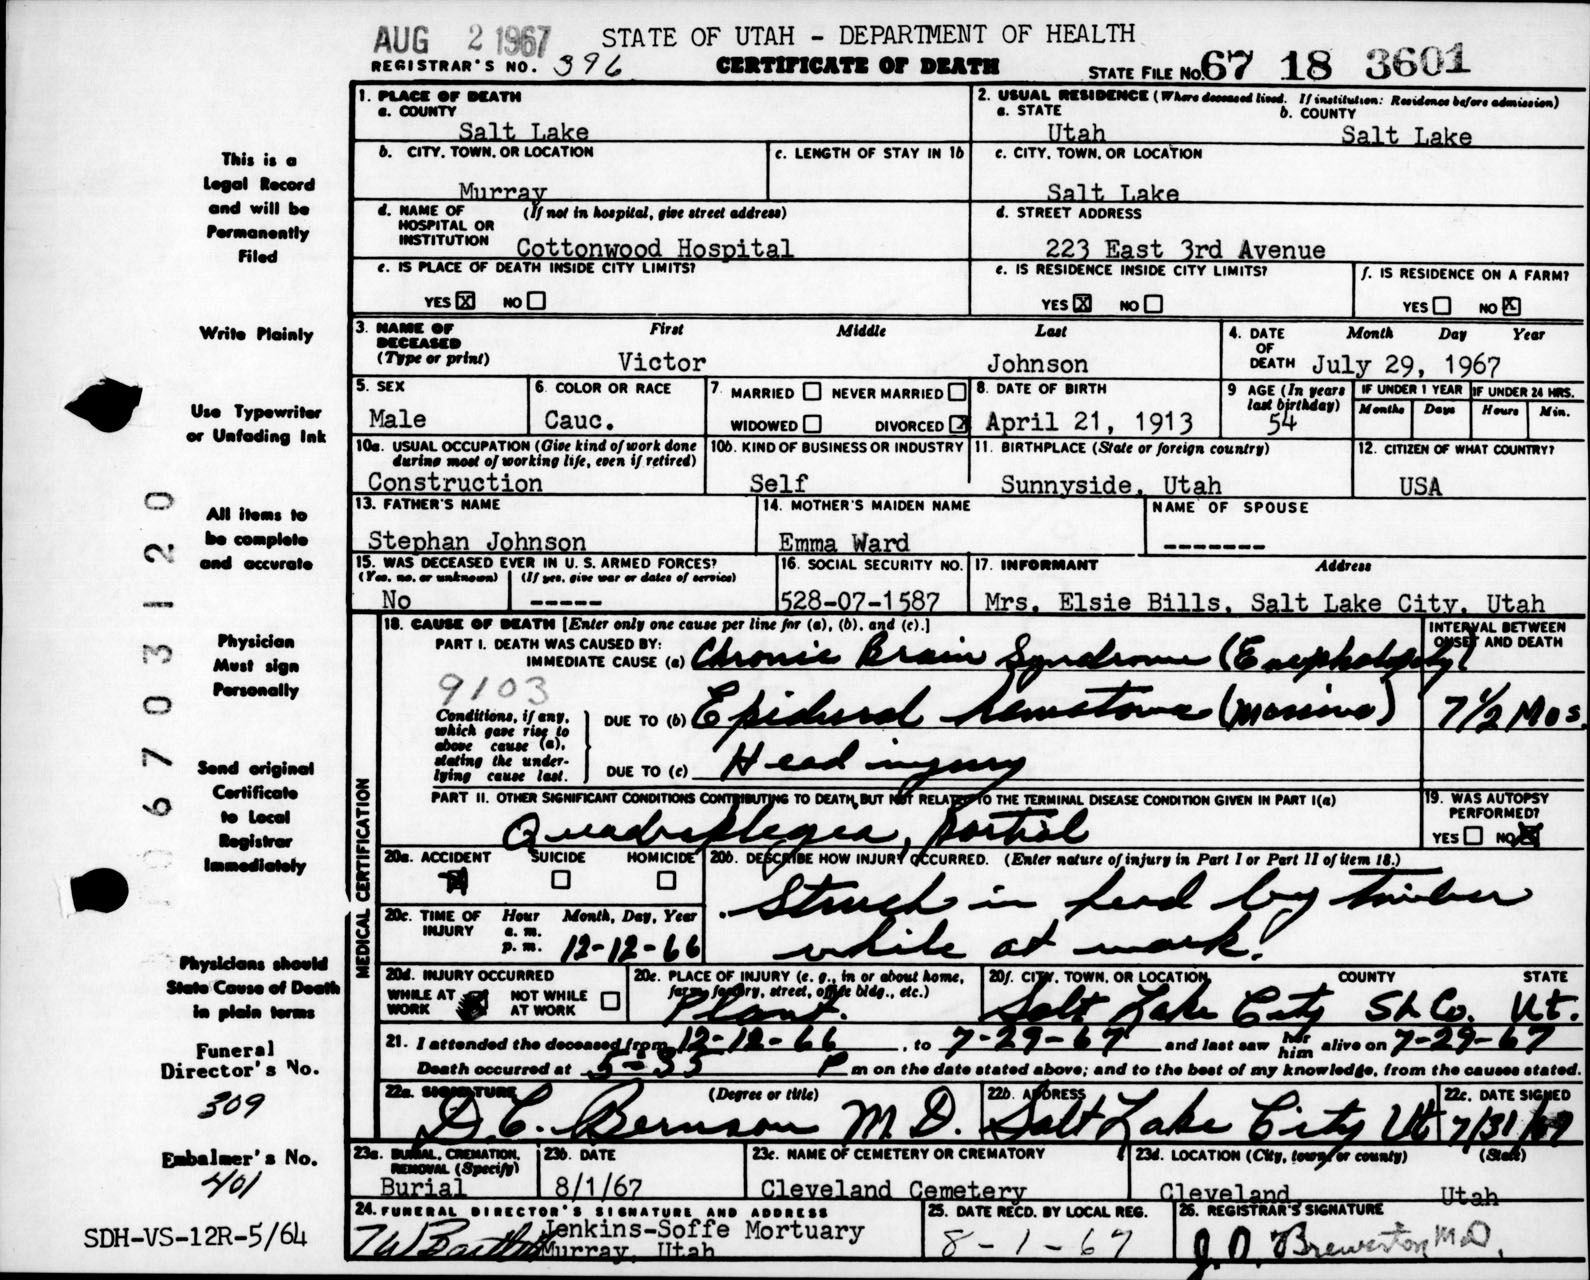 AUG 2 1967 STATE OF UTAH - DEPARTMENT OF HEALTH
REGISTRAR'S NO. 396 CERTIFICATE OF DEATH STATE FILE NO. 67 18 3601
1. PLACE OF DEATH
a. COUNTY
Salt Lake
2. USUAL RESIDENCE (Where deceased lived. If institution: Residence before admission)
a. STATE b. COUNTY
Utah Salt Lake
b. CITY, TOWN, OR LOCATION
Murray
c. LENGTH OF STAY IN 1b
c. CITY, TOWN, OR LOCATION
Salt Lake
d. NAME OF HOSPITAL OR INSTITUTION (If not in hospital, give street address)
Cottonwood Hospital
d. STREET ADDRESS
223 East 3rd Avenue
e. IS PLACE OF DEATH INSIDE CITY LIMITS?
YES X NO
e. IS RESIDENCE INSIDE CITY LIMITS?
YES X NO
f. IS RESIDENCE ON A FARM?
YES NO X
3. NAME OF DECEASED (Type or print)
First Middle Last
Victor Johnson
4. DATE OF DEATH Month Day Year
July 29, 1967
5. SEX
Male
6. COLOR OR RACE
Cauc.
7. MARRIED NEVER MARRIED
WIDOWED DIVORCED X
8. DATE OF BIRTH
April 21, 1913
9 AGE (In years last birthday)
54
IF UNDER 1 YEAR IF UNDER 24 HRS.
Months Days Hours Min.
10a. USUAL OCCUPATION (Give kind of work done during most of working life, even if retired)
Construction
10b. KIND OF BUSINESS OR INDUSTRY
Self
11. BIRTHPLACE (State or foreign country)
Sunnyside, Utah
12. CITIZEN OF WHAT COUNTRY?
USA
13. FATHER'S NAME
Stephan Johnson
14. MOTHER'S MAIDEN NAME
Emma Ward
NAME OF SPOUSE
-------
15. WAS DECEASED EVER IN U. S. ARMED FORCES?
(Yes, no, or unknown) (If yes, give war or dates of service)
No -----
16. SOCIAL SECURITY NO.
528-07-1587
17. INFORMANT Address
Mrs. Elsie Bills, Salt Lake City, Utah
MEDICAL CERTIFICATION
18. CAUSE OF DEATH [Enter only one cause per line for (a), (b), and (c).]
INTERVAL BETWEEN ONSET AND DEATH
PART I. DEATH WAS CAUSED BY:
IMMEDIATE CAUSE (a) Chronic Brain Syndrome (Encephalopathy)
9103
Conditions, if any, which gave rise to above cause (a), stating the underlying cause last.
DUE TO (b) Epidural hematoma (massive) 7 1/2 Mos.
DUE TO (c) Head injury
PART II. OTHER SIGNIFICANT CONDITIONS CONTRIBUTING TO DEATH BUT NOT RELATED TO THE TERMINAL DISEASE CONDITION GIVEN IN PART I(a)
Quadraplegea, partial
19. WAS AUTOPSY PERFORMED?
YES NO X
20a. ACCIDENT SUICIDE HOMICIDE
X
20b. DESCRIBE HOW INJURY OCCURRED. (Enter nature of injury in Part I or Part II of item 18.)
Struck in head by timber
while at work.
20c. TIME OF INJURY Hour Month, Day, Year
a. m.
p. m. 12-12-66
20d. INJURY OCCURRED
WHILE AT WORK NOT WHILE AT WORK
20e. PLACE OF INJURY (e. g., in or about home, farm, factory, street, office bldg., etc.)
Plant.
20f. CITY, TOWN, OR LOCATION COUNTY STATE
Salt Lake City SL Co. Ut.
21. I attended the deceased from 12-12-66, to 7-29-67 and last saw her him alive on 7-29-67
Death occurred at 5-35 P m on the date stated above; and to the best of my knowledge, from the causes stated.
22a. SIGNATURE (Degree or title)
D.C. Bernson M.D.
22b. ADDRESS
Salt Lake City Ut
22c. DATE SIGNED
7/31/67
23a. BURIAL, CREMATION, REMOVAL (Specify)
Burial
23b. DATE
8/1/67
23c. NAME OF CEMETERY OR CREMATORY
Cleveland Cemetery
23d. LOCATION (City, town, or county) (State)
Cleveland Utah
24. FUNERAL DIRECTOR'S SIGNATURE AND ADDRESS
Jenkins-Soffe Mortuary
Murray, Utah
25. DATE RECD. BY LOCAL REG.
8-1-67
26. REGISTRAR'S SIGNATURE
Brewerton M.D.
This is a
Legal Record
and will be
Permanently
Filed
Write Plainly
Use Typewriter
or Unfading Ink
All items to
be complete
and accurate
Physician
Must sign
Personally
Send original
Certificate
to Local
Registrar
Immediately
Physicians should
State Cause of Death
in plain terms
Funeral
Director's No.
309
Embalmer's No.
401
SDH-VS-12R-5/64
0 6 7 0 3 1 2 0